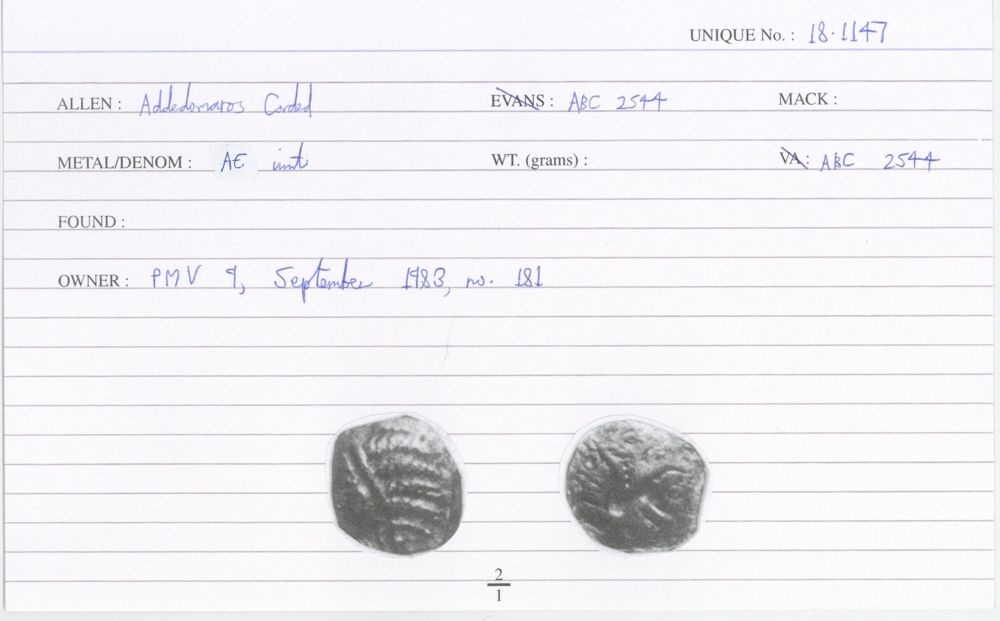 UNIQUE No. : 18·1147
ALLEN : Addedomaros Corded EVANS : ABC 2544 MACK :
METAL/DENOM : AE unit WT. (grams) : VA : ABC 2544
FOUND :
OWNER : PMV 9, September 1983, no. 181
2
1